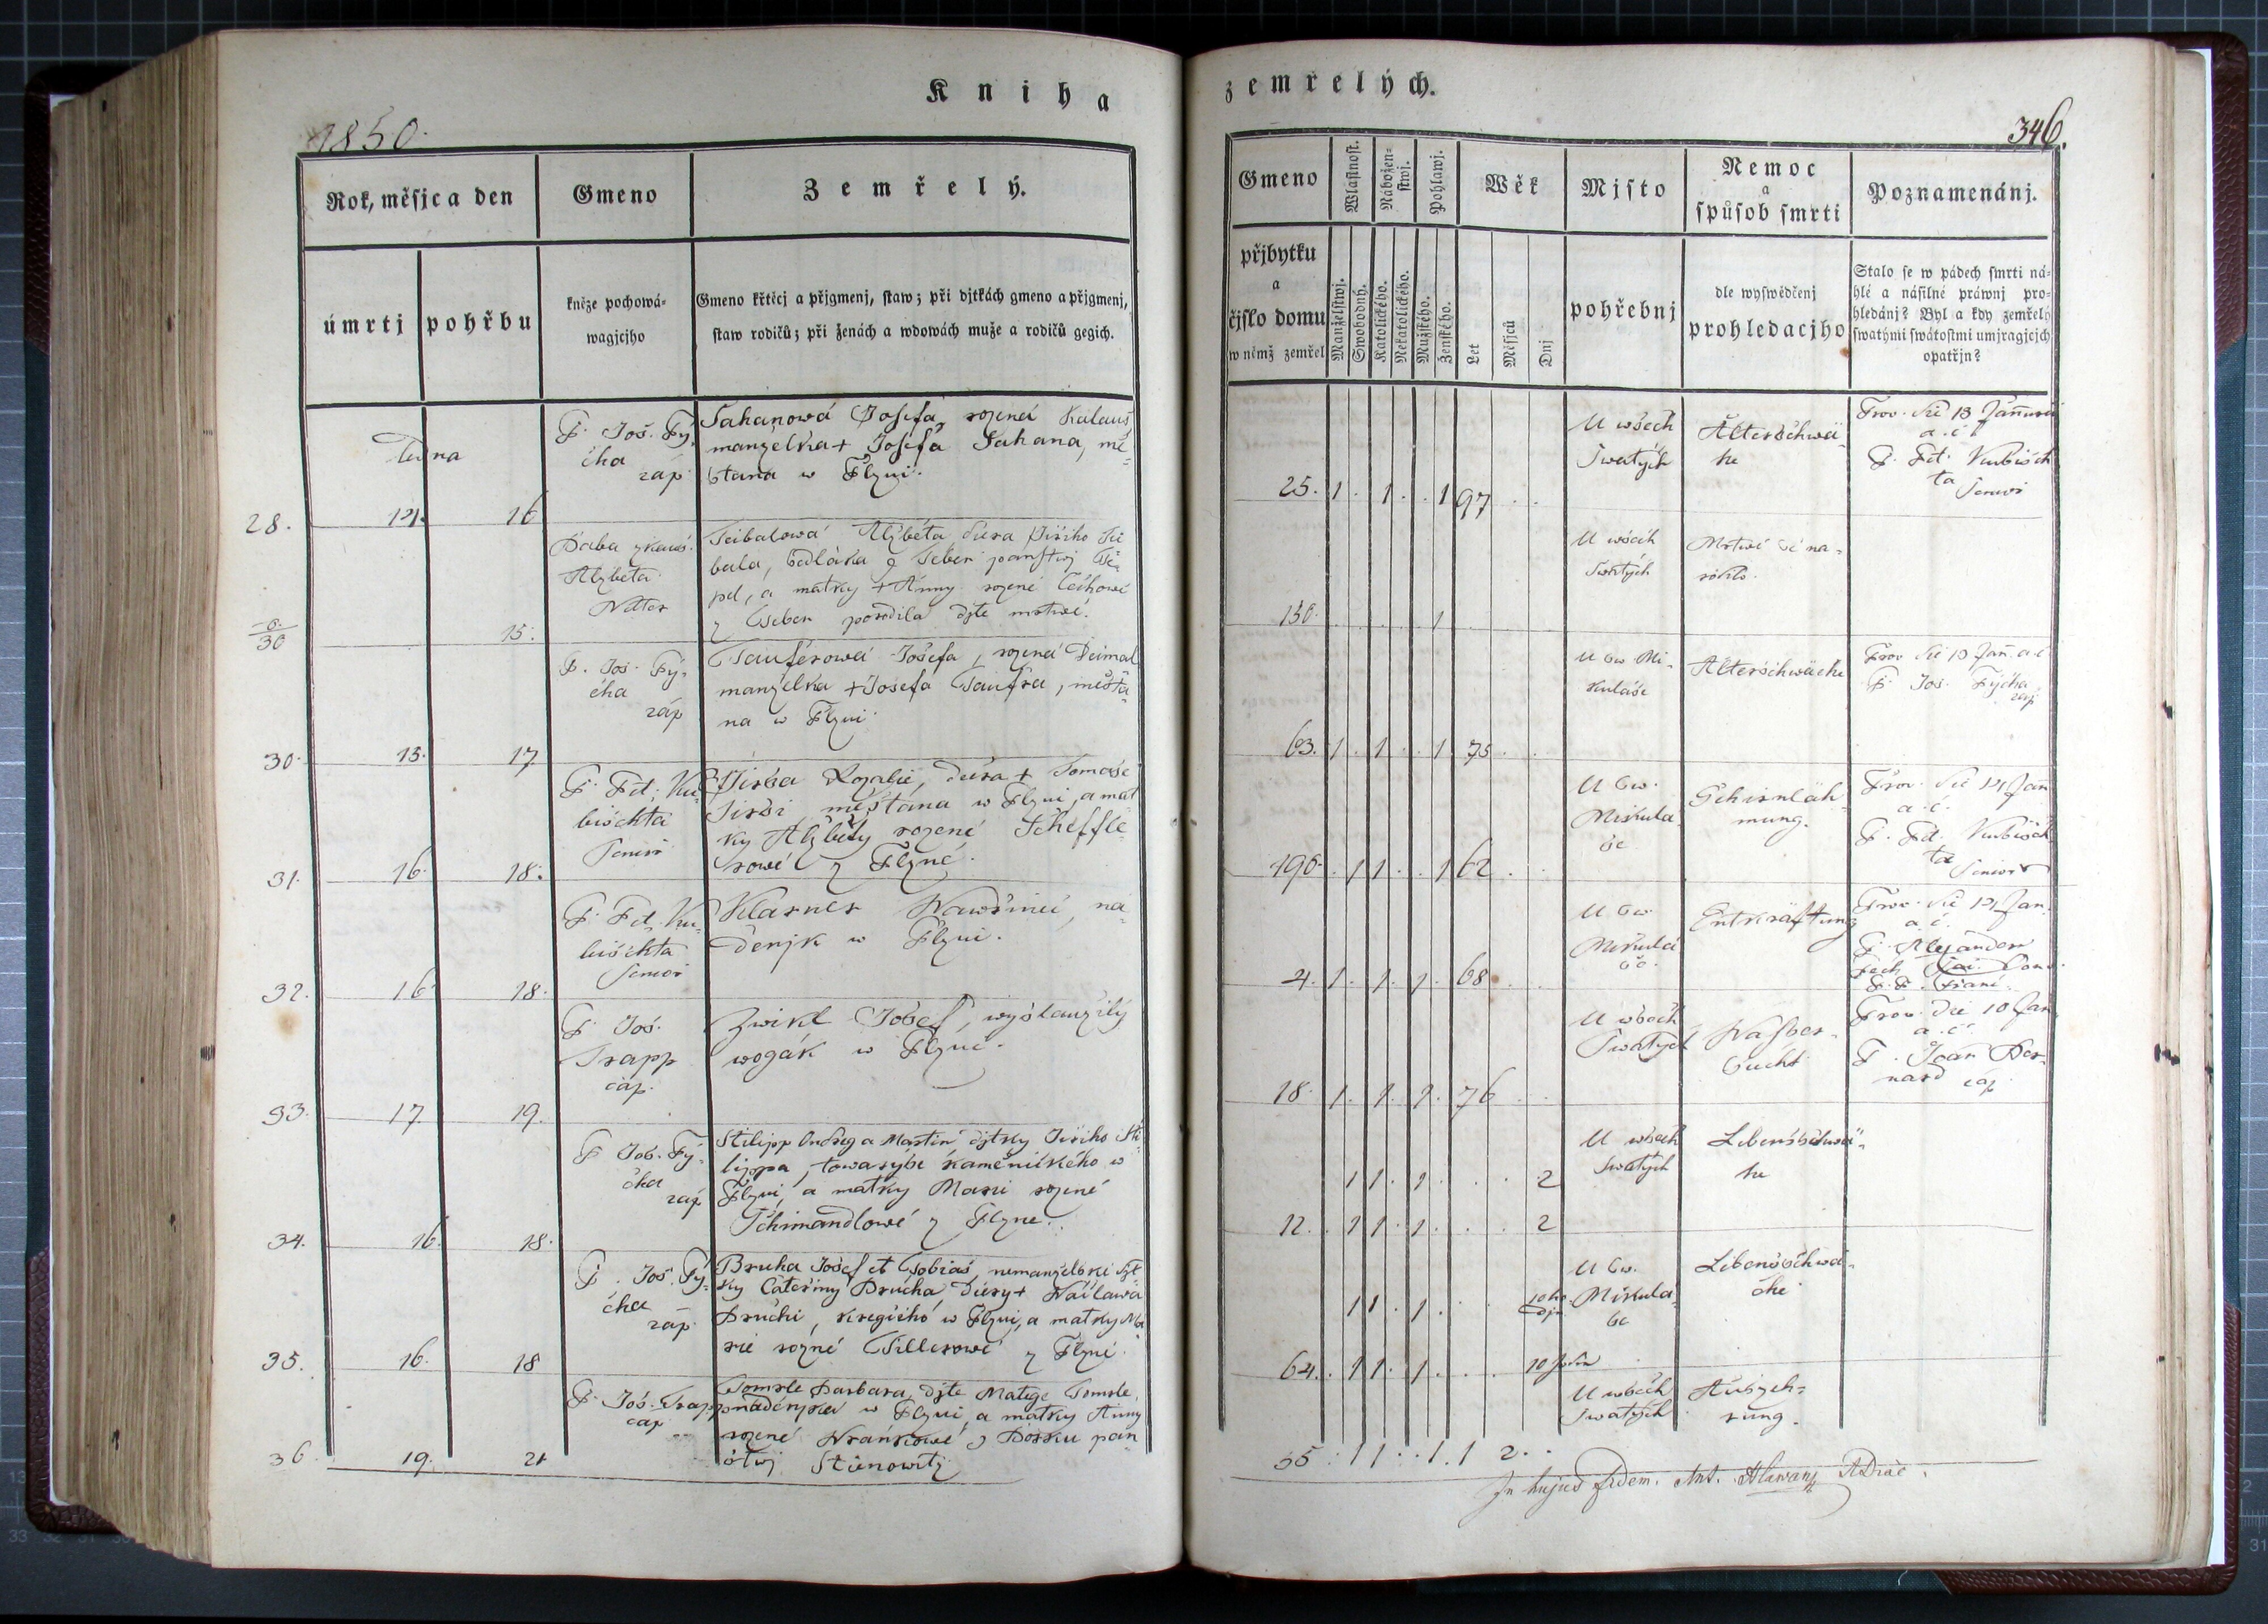 Kniha
zemřelých.
1850.
346.
Rok, měsjc a den
Gmeno
Zemřelý.
úmrtj
pohřbu
kněze pochowá-
wagjcjho
Gmeno křtěcj a přjgmenj, staw; při djtkách gmeno a přjgmenj,
staw rodičů; při ženách a wdowách muže a rodičů gegich.
Gmeno
přjbytku
a
čjslo domu
w němž zemřel
Wlastnost.
Manželstwj.
Swobodný.
Nábožen-
stwj.
Katolického.
Nekatolického.
Pohlawj.
Mužského.
Ženského.
Wěk
Let
Měsjců
Dnj
Mjsto
pohřebnj
Nemoc
a
spůsob smrti
dle wyswědčenj
prohledacjho
Poznamenánj.
Stalo se w pádech smrti ná-
hlé a násilné práwnj pro-
hledánj? Byl a kdy zemřelý
swatými swátostmi umjragjcjch
opatřjn?
Ledna
28.
14.
16
P. Jos. Pý-
cha
cáp
Sahanowá Josefa, rozená Kalauš
manželka + Josefa Sahana, mě-
štana w Plzni.
25. 1. 1. 1 97
U wšech
Swatých
Altersschwä-
he
Prov. die 13 Januari
a. c.
P. Fd. Kubisch
ta
Senior
0.
30
15.
Alžběta
Alžběta dcera Jiřího
bala, sedláka z
pel, a matky + Anny rozené Čechowé
z porodila djte mrtwé.
150. 1
U wšech
Swatých
Mrtwé se na-
rodilo.
30.
15.
17
P. Jos. Pý-
cha
cáp
Tauferowá Josefa, rozená
manželka + Josefa Taufra, měšťa-
na w Plzni
63. 1. 1. 1 75
U sw Mi-
kuláše
Alterschwäche
Prov die 10 Jan. a. c.
P. Jos. Pýcha
cáp
31.
16.
18.
P. Fd. Ku-
bischta
Senior
Jirsa Rozalie, dcera + Tomáše
Jirsi měštana w Plzni, a mat
ky Alžběty rozené Scheffle-
rowé z Plzně.
190. 1 1. 1 62
U sw.
Mikulá-
še
Gehirnläh-
mung.
Prov. die 14 Jan
a. c.
P. Fd. Kubisch
ta
Senior
32.
16.
18.
P. Fd. Ku-
bischta
Senior
Klasner Wawřinec, ná-
denjk w Plzni.
4. 1. 1. 1. 68
U sw.
Mikulá
še.
Entkräftung
Prov. die 14 Jan.
a. c.
P. Alexander
33.
17.
19.
P. Jos.
Trapp
cáp.
Zwikl Josef, wyslaužilý
wogák w Plzni.
18. 1. 1. 1. 76
U wšech
Swatých
Waßer-
sucht
Prov. die 10 Jan
a. c.
P. Joan Ber-
nard cáp
34.
16.
18.
P Jos. Pý-
cha
cáp
Stilipp Ondřeg a Martin djtky Jiřího Sti-
lippa, towaryše kamenického w
Plzni, a matky Marie rozené
Schimandlowé z Plzne.
1 1. 1. 2
12. 1 1. 1. 2
U wšech
Swatých
Lebensschwä-
he
35.
16.
18
P. Jos. Pý-
cha
cáp
Brucha Josef et Tobiáš, nemanželské djt-
ky Cateřiny Brucha, dcery + Wáclawa
Bruchi, kregčího w Plzni, a matky Ma
rie rozné Tillerowé z Plzně.
1 1. 1. 10 ho-
djn
64. 1 1. 1. 10 hodin
U sw.
Mikulá-
še
Lebensschwä-
che
36.
19.
21
P. Jos. Trapp
cáp
Tomsle Barbara, djte Matěge Tomsle,
nádenjka w Plzni, a matky Anny
rozené Wrankowé z Borku pan
stwj Stienowitz
55. 1 1. . 1. 1 2.
U wšech
Swatých
Auszeh-
rung.
In hujus fidem. Ant. Hlawan